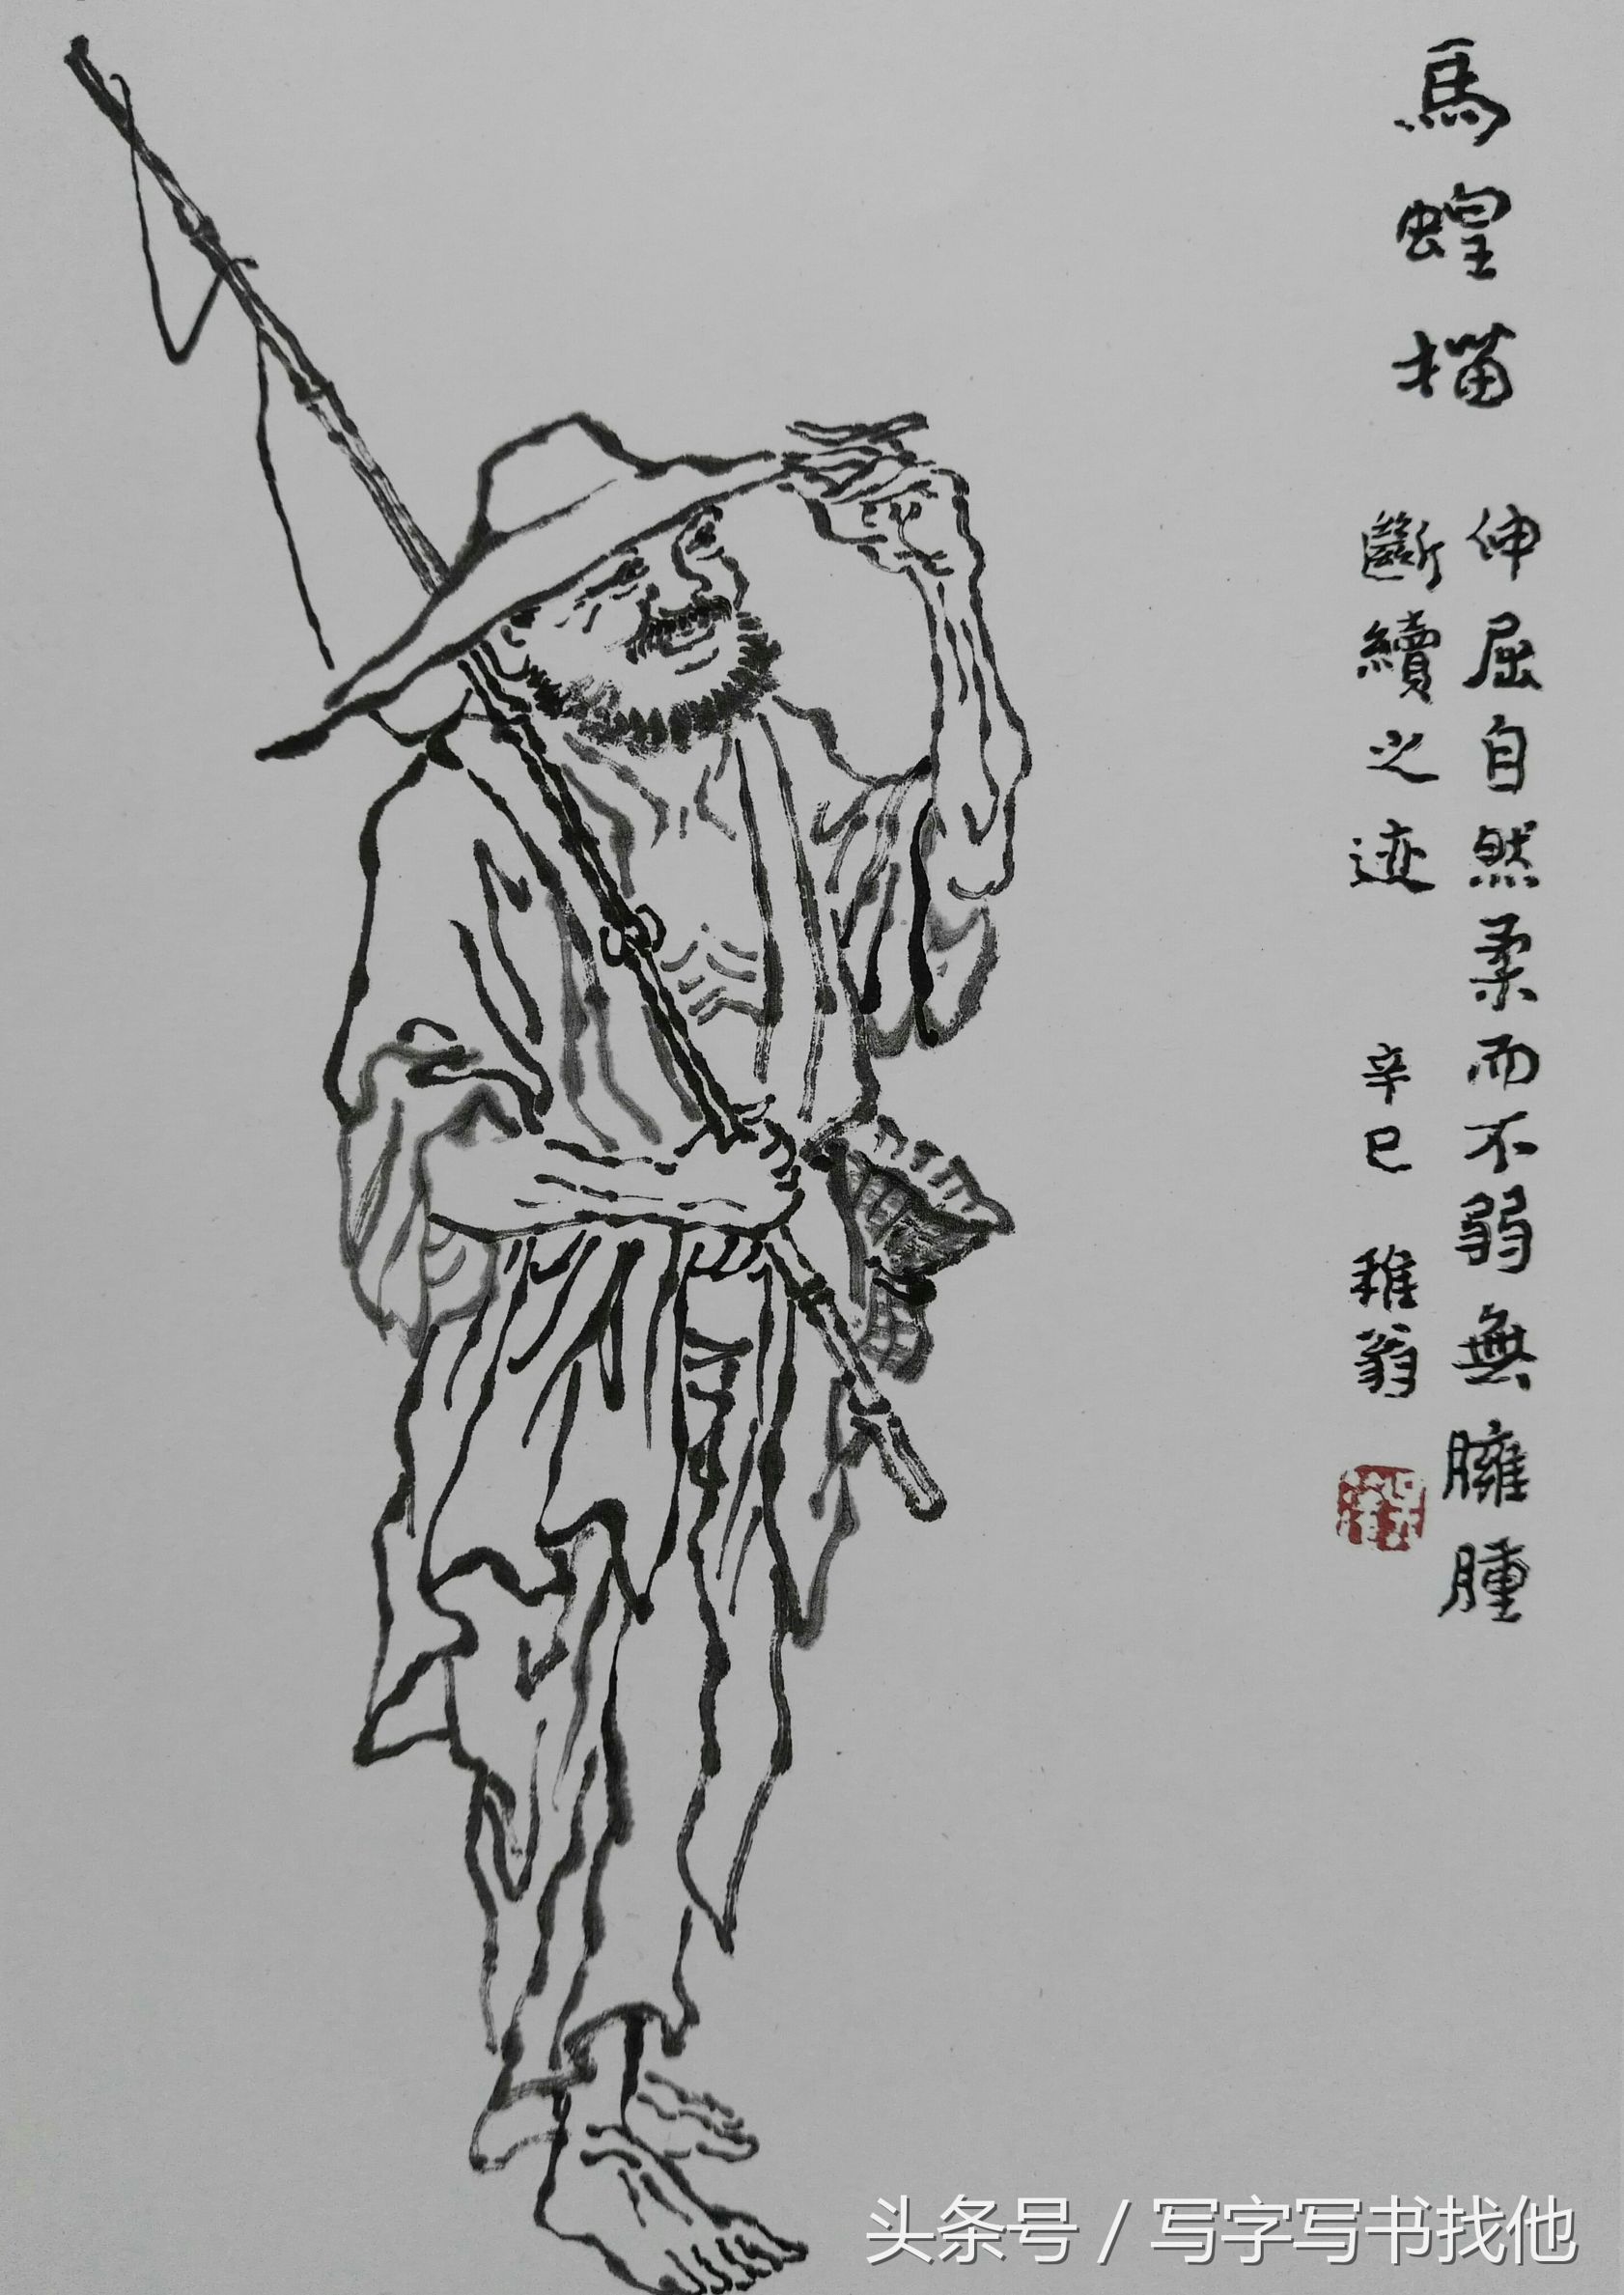 馬蝗描
伸屈自然柔而不弱無臃腫
斷續之迹
辛巳 稚翁
头条号 / 写字写书找他